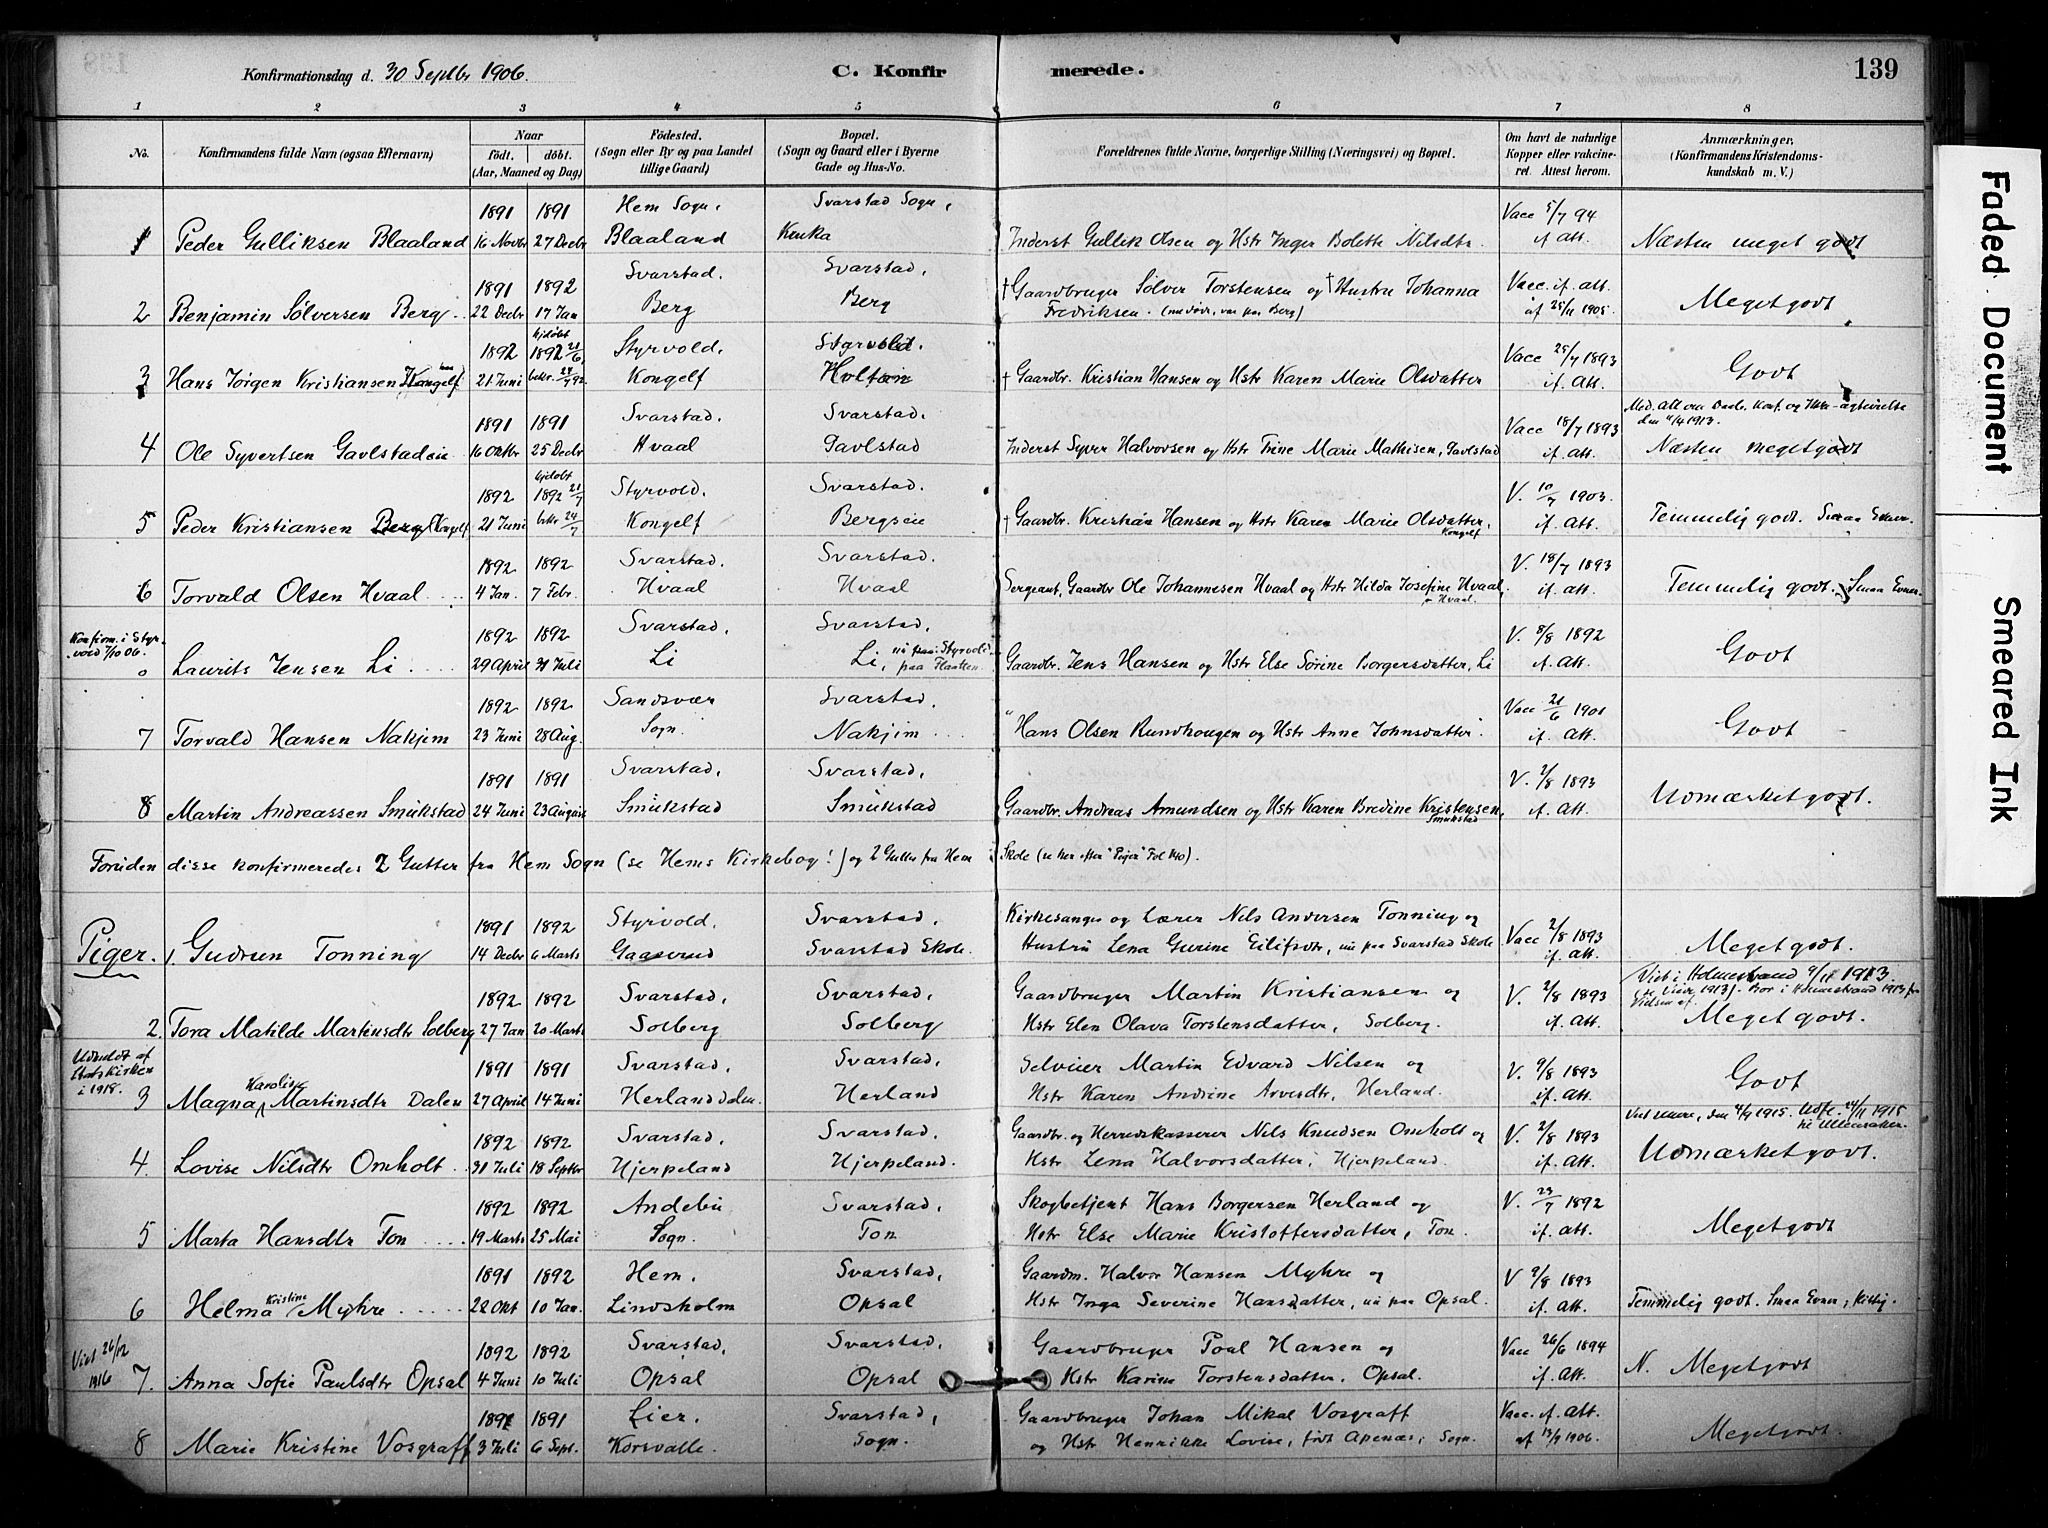 Konfirmationsdag d. 30 Septbr 1906. C. Konfirmerede. 139
1 2 3 4 5 6 7 8
No. Konfirmandens fulde Navn (ogsaa Efternavn) Naar født. døbt. (Aar, Maaned og Dag) Fødested. (Sogn eller By og paa Landet tillige Gaard) Bopæl. (Sogn og Gaard eller i Byerne Gade og Hus-No. Forældrenes fulde Navne, borgerlige Stilling (Næringsvei) og Bopæl. Om havt de naturlige Kopper eller vakcineret. Attest herom. Anmærkninger, (Konfirmandens Kristendomskundskab m. V.)
1891 1891 Hem Sogn, Svarstad Sogn, Vacc 5/7 94
1 Peder Gulliksen Blaaland 16 Novbr 27 Decbr Blaaland Inderst Gullik Olsen og Hstr Inger Bolette Nilsdtr. if. Att. Næsten meget godt
1891 1892 Svarstad. Svarstad, † Gaardbruger Sølver Torstensen og † Hustru Johanna Vacc. if. att.
2 Benjamin Sølversen Berg 22 Decbr 17 Jan Berg Berg Fredriksen. af 25/11 1905. Meget godt
1892 kjdøbt 1892 21/6 Styrvold. Styrvold. Vacc 25/7 1893
3 Hans Jørgen Kristiansen Kongelf 21 Juni bekr. 24/7 92 Kongelf Holtan † Gaardbr. Kristian Hansen og Hstr Karen Marie Olsdatter if. Att. Godt
1891 1891 Svarstad. Svarstad. Vacc 18/7 1893
4 Ole Syvertsen Gavlstadeie 16 Oktbr 25 Decbr Hvaal Gavlstad Inderst Syver Halvorsen og Hstr Trine Marie Mathisen, Gavlstad if. Att. Næsten meget godt
1892 kjdøbt 1892 21/7 Styrvold. Svarstad. V. 10/7 1903.
5 Peder Kristiansen Berg Kongelf 21 Juni bekr 24/7 Kongelf Bergseie † Gaardbr. Kristian Hansen og Hstr Karen Marie Olsdatter, Kongelf if. Att. Temmelig godt. Smaa Evner.
1892 1892 Svarstad. Svarstad. V. 18/7 1893
6 Torvald Olsen Hvaal 4 Jan. 7 Febr. Hvaal Hvaal Sergeant, Gaardbr Ole Johannesen Hvaal og Hstr Hilda Josefine Hvaal, Hvaal. if. Att. Temmelig godt. Smaa Evner.
Konfirm. i Styrvold 7/10 06. 1892 1892 Svarstad, Svarstad. V. 8/8 1892
0 Laurits Jensen Li 29 April 31 Juli Li Li, Gaardbr. Jens Hansen og Hstr Else Sørine Borgersdatter, Li if. Att. Godt
1892 1892 Sandsvær Svarstad. Vacc 21/6 1901
7 Torvald Hansen Nakjim 23 Juni 28 Aug. Sogn. Nakjim " Hans Olsen Rundhougen og Hstr Anne Johnsdatter if. Att. Godt
1891 1891 Svarstad, Svarstad, V. 2/8 1893
8 Martin Andreassen Smukstad 24 Juni 23 August Smukstad Smukstad Gaardbr. Andreas Amundsen og Hstr Karen Bredine Kristensen, Smukstad if. Att. Udmærket godt.
Foruden disse konfirmeredes 2 Gutter fra Hem Sogn (se Hems Kirkebog!) og 2 Gutter fra Hem Skole (se her efter "Piger" Fol 140).
1891 1892 Styrvold. Svarstad, Kirkesanger og Lærer Nils Andersen Tonning og Vacc 2/8 1893
Piger. 1. Gudrun Tonning 14 Decbr 6 Marts Gaaserud Svarstad Skole. Hustru Lena Gurine Eilifsdtr, nu paa Svarstad Skole if. Att. Meget godt.
1892 1892 Svarstad, Svarstad, Gaardbruger Martin Kristiansen og V. 2/8 1893 Viet i Holmestrand 9/11 1913.
2. Tora Matilde Martinsdtr Solberg 27 Jan 20 Marts Solberg Solberg Hstr Elen Olava Torstensdatter, Solberg. if. Att. Meget godt.
Udmeldt af Statskirken i 1918. 1891 1891 Svarstad, Svarstad. Selveier Martin Edvard Nilsen og V. 9/8 1893
3 Magna Karoline Martinsdtr Dalen 27 April 14 Juni Herland dalen. Herland Hstr Karen Andrine Arvesdtr, Herland. if. Att. Godt
1892 1892 Svarstad. Svarstad. Gaardbr. og Herredskasserer Nils Knudsen Omholt og V. 2/8 1893
4. Lovise Nilsdtr Omholt 31 Juli 18 Septbr Hjerpeland Hjerpeland. Hstr Lena Halvorsdatter, Hjerpeland. if. Att. Udmærket godt.
1892 1892 Andebu Svarstad. Skogbetjent Hans Borgersen Herland og V. 23/7 1892
5 Marta Hansdtr Ton 19 Marts 25 Mai Sogn. Ton Hstr Else Marie Kristoffersdatter, Ton. if. Att. Meget godt
1891 1892 Hem. Svarstad, Gaardm. Halvor Hansen Myhre og V 9/8 1893
6 Helma Kristine Myhre 22 Okt 10 Jan. Lindsholm Opsal Hstr Inga Severine Hansdatter, nu paa Opsal. if. Att. Temmelig godt. Smaa Evner,
Viet 26/12 1916 1892 1892 Svarstad, Svarstad, Gaardbruger Poal Hansen og Vacc 26/6 1894
7. Anna Sofie Paulsdtr Opsal 4 Juni 10 Juli Opsal Opsal Hstr Karine Torstensdatter, Opsal. if. Att. N. Meget godt
1891 1891 Lier. Svarstad, Gaardbruger Johan Mikal Vosgraff Vacc. if. Att.
8 Marie Kristine Vosgraff 3 Juli 6 Sept. Korsvalle. Sogn. og Hstr Henrikke Lovise, født Apenæs, Sogn. af 13/9 1906. Meget godt.
Faded Document
Smeared Ink